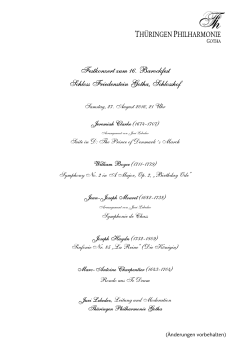 Th
THÜRINGEN PHILHARMONIE
GOTHA
Festkonzert zum 16. Barockfest
Schloss Friedenstein Gotha, Schlosshof
Samstag, 27. August 2016, 21 Uhr
Jeremiah Clarke (1674-1707)
Arrangement von Juri Lebedev
Suite in D: The Prince of Denmark's March
William Boyce (1711-1779)
Symphony No. 2 in A Major, Op. 2, „Birthday Ode"
Jean-Joseph Mouret (1682-1738)
Arrangement von Juri Lebedev
Symphonie de Chass
Joseph Haydn (1732-1809)
Sinfonie Nr. 85 „La Reine" (Die Königin)
Marc-Antoine Charpentier (1643-1704)
Rondo aus Te Deum
Juri Lebedev, Leitung und Moderation
Thüringen Philharmonie Gotha
(Änderungen vorbehalten)